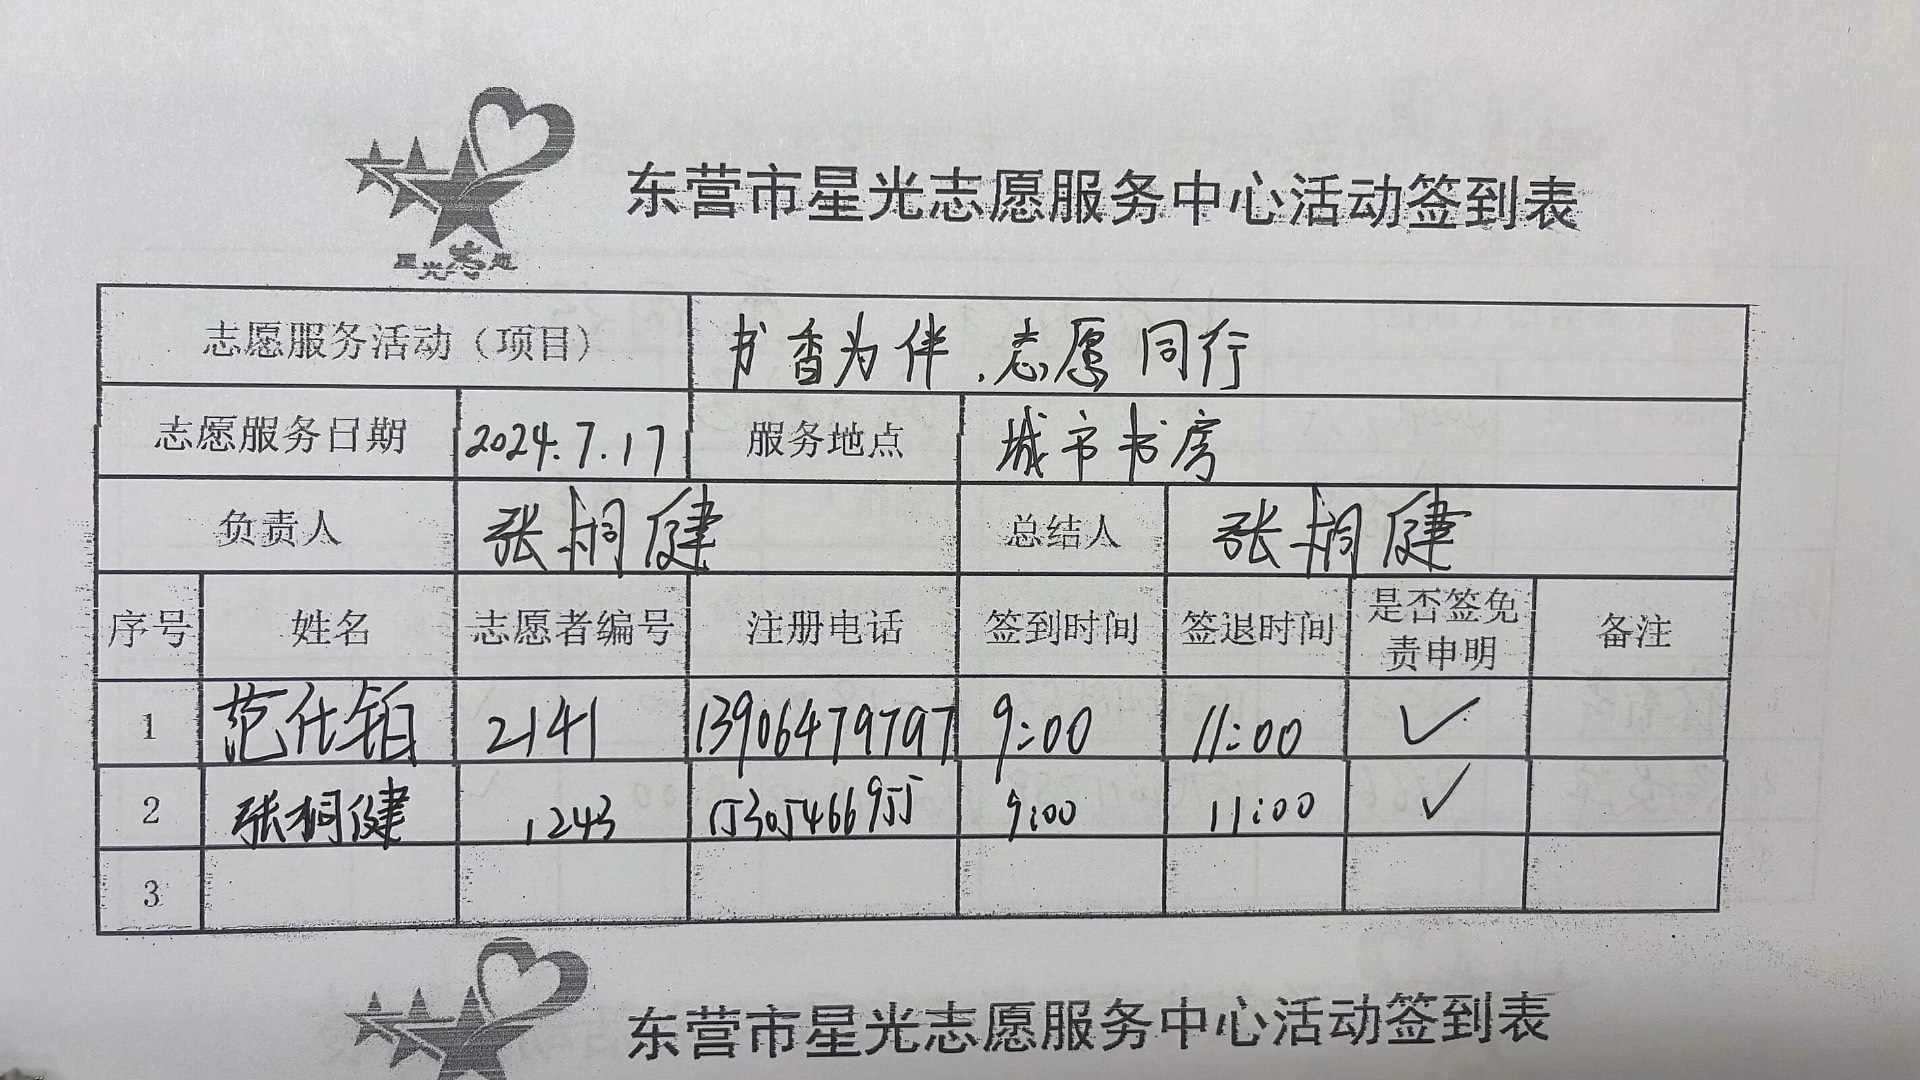 东营市星光志愿服务中心活动签到表
星光志愿
志愿服务活动（项目） 书香为伴、志愿同行
志愿服务日期 2024.7.17 服务地点 城市书房
负责人 张桐健 总结人 张桐健
序号 姓名 志愿者编号 注册电话 签到时间 签退时间 是否签免责申明 备注
1 范仕铂 2141 13906479797 9:00 11:00 ✓
2 张桐健 1243 15305466955 9:00 11:00 ✓
3
东营市星光志愿服务中心活动签到表